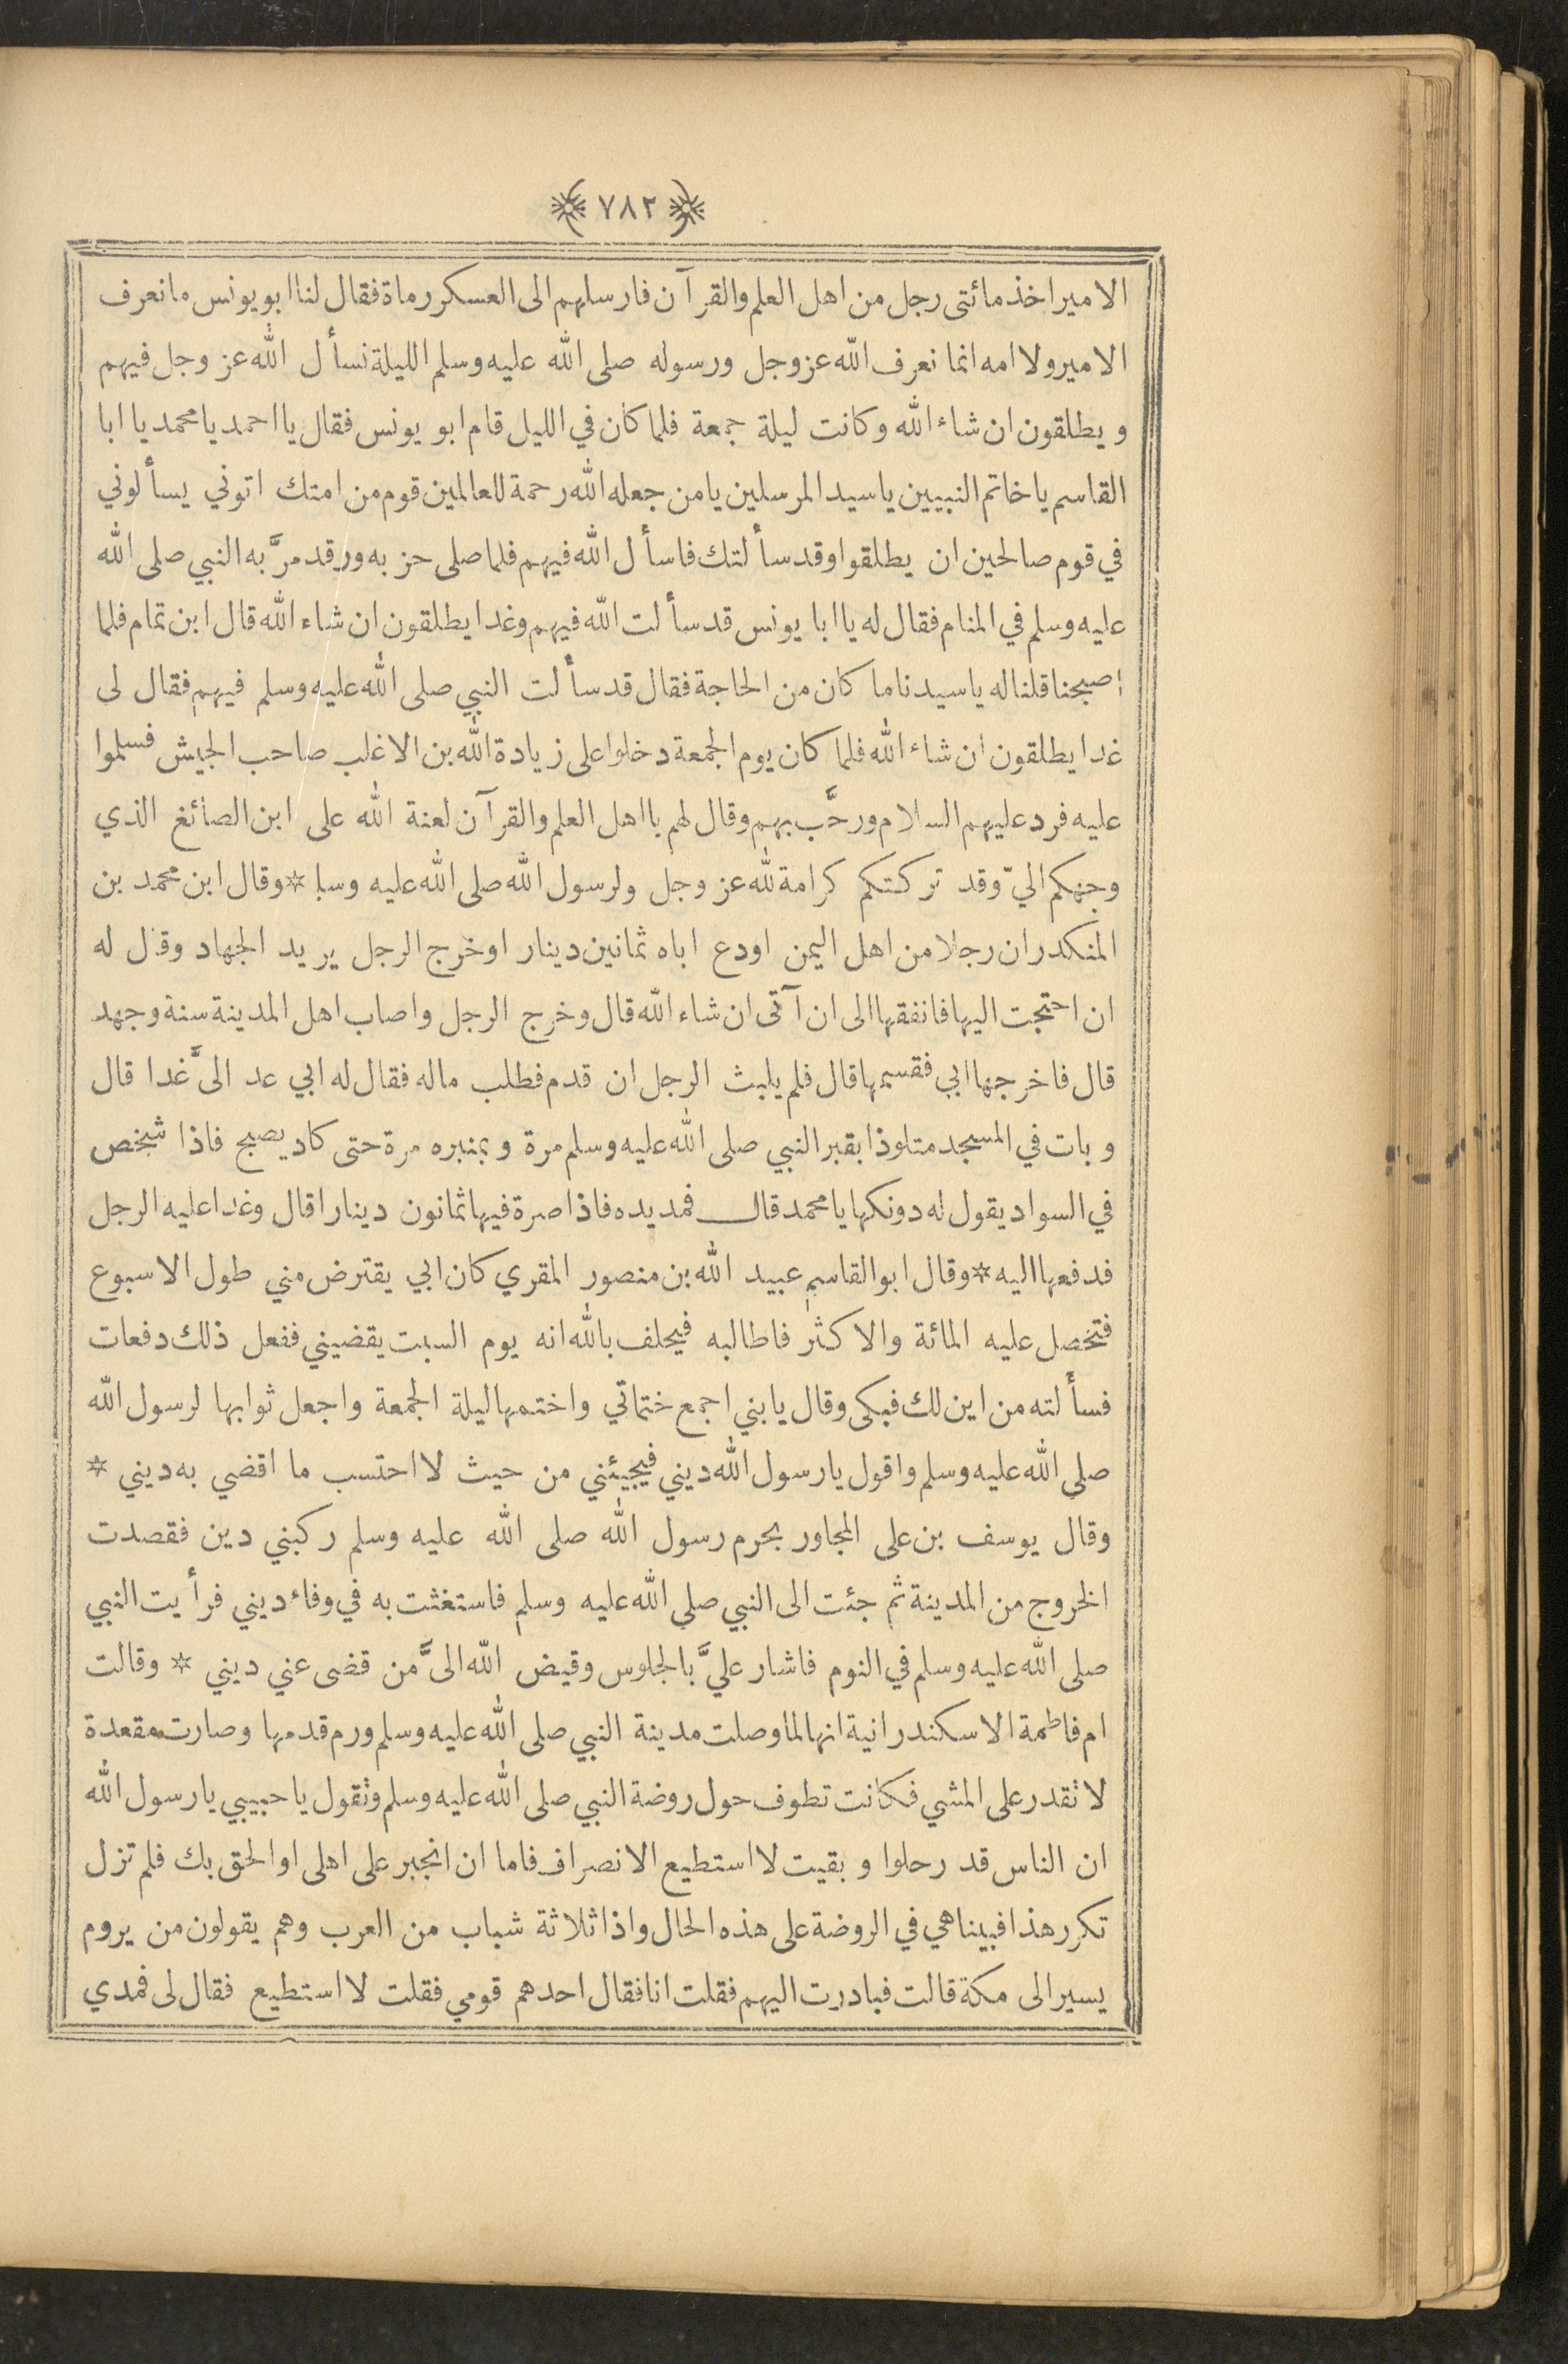 ﴿ ٧٨٢ ﴾
الامير اخذ مائتى رجل من اهل العلم والقرآن فارسلهم الى العسكر رماة فقال لنا ابو يونس ما نعرف
الامير ولا امه انما نعرف الله عز وجل ورسوله صلى الله عليه وسلم الليلة نسأل الله عز وجل فيهم
و يطلقون ان شاء الله وكانت ليلة جمعة فلما كان في الليل قام ابو يونس فقال يا احمد يا محمد يا ابا
القاسم يا خاتم النبيين يا سيد المرسلين يا من جعله الله رحمة للعالمين قوم من امتك اتوني يسألوني
في قوم صالحين ان يطلقوا وقد سألتك فاسأل الله فيهم فلما صلى حزبه ورقد مرَّ به النبي صلى الله
عليه وسلم في المنام فقال له يا ابا يونس قد سألت الله فيهم وغدا يطلقون ان شاء الله قال ابن تمام فلما
اصبحنا قلنا له يا سيدنا ما كان من الحاجة فقال قد سألت النبي صلى الله عليه وسلم فيهم فقال لى
غدا يطلقون ان شاء الله فلما كان يوم الجمعة دخلوا على زيادة الله بن الاغلب صاحب الجيش فسلموا
عليه فرد عليهم السلام ورحَّب بهم وقال لهم يا اهل العلم والقرآن لعنة الله على ابن الصائغ الذي
وجهكم اليّ وقد تركتكم كرامة لله عز وجل ولرسول الله صلى الله عليه وسلم * وقال ابن محمد بن
المنكدر ان رجلا من اهل اليمن اودع اباه ثمانين دينارا وخرج الرجل يريد الجهاد وقال له
ان احتجت اليها فانفقها الى ان آتى ان شاء الله قال وخرج الرجل واصاب اهل المدينة سنة وجهد
قال فاخرجها ابي فقسمها قال فلم يلبث الرجل ان قدم فطلب ماله فقال له ابي عد الىَّ غدا قال
و بات في المسجد متلوذا بقبر النبي صلى الله عليه وسلم مرة و بمنبره مرة حتى كاد يصبح فاذا شخص
في السواد يقول له دونكها يا محمد قال فمد يده فاذا صرة فيها ثمانون دينارا قال وغدا عليه الرجل
فدفعها اليه * وقال ابو القاسم عبيد الله بن منصور المقري كان ابي يقترض مني طول الاسبوع
فتحصل عليه المائة والاكثر فاطالبه فيحلف بالله انه يوم السبت يقضيني ففعل ذلك دفعات
فسألته من اين لك فبكى وقال يا بني اجمع ختماتي واختمها ليلة الجمعة واجعل ثوابها لرسول الله
صلى الله عليه وسلم واقول يا رسول الله ديني فيجيئني من حيث لا احتسب ما اقضي به ديني *
وقال يوسف بن على المجاور بحرم رسول الله صلى الله عليه وسلم ركبني دين فقصدت
الخروج من المدينة ثم جئت الى النبي صلى الله عليه وسلم فاستغثت به في وفاء ديني فرأيت النبي
صلى الله عليه وسلم في النوم فاشار عليَّ بالجلوس وقيض الله الىَّ من قضى عني ديني * وقالت
ام فاطمة الاسكندرانية انها لما وصلت مدينة النبي صلى الله عليه وسلم ورم قدمها وصارت مقعدة
لا تقدر على المشي فكانت تطوف حول روضة النبي صلى الله عليه وسلم وتقول يا حبيبي يا رسول الله
ان الناس قد رحلوا و بقيت لا استطيع الانصراف فاما ان انجبر على اهلى او الحق بك فلم تزل
تكرر هذا فبينا هي في الروضة على هذه الحال واذا ثلاثة شباب من العرب وهم يقولون من يروم
يسير الى مكة قالت فبادرت اليهم فقلت انا فقال احدهم قومي فقلت لا استطيع فقال لى فمدي